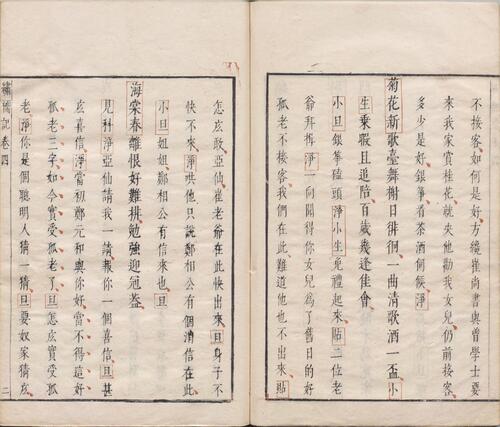 客不接客如何是好方纔崔尚書與曾學士要
來我家賞桂花就央他勸我女兒仍前接客
多少是好銀箏看茶酒伺候淨
菊花新歌臺舞榭日徘徊一曲清歌酒一盃小
生乘暇且追陪百歲幾逢佳會
小旦銀箏磕頭淨小生免禮起來貼二位老
爺拜揖淨一向聞得你女兒爲了舊日的好
孤老不接客我們在此難道他也不出來貼
怎広敢亞仙崔老爺在此快出來旦身子不
快不來淨哄他只說鄭相公有個消信在此
小旦姐姐鄭相公有信來也旦
海棠春離恨好難排勉強迎冠盖
見科淨亞仙請我一請報你一個喜信旦甚
広喜信淨當初鄭元和與你好當不得這好
孤老三字如今實受孤老了旦怎広實受孤
老淨你是個聰明人猜一猜旦要奴家猜広
繡襦記卷四
二